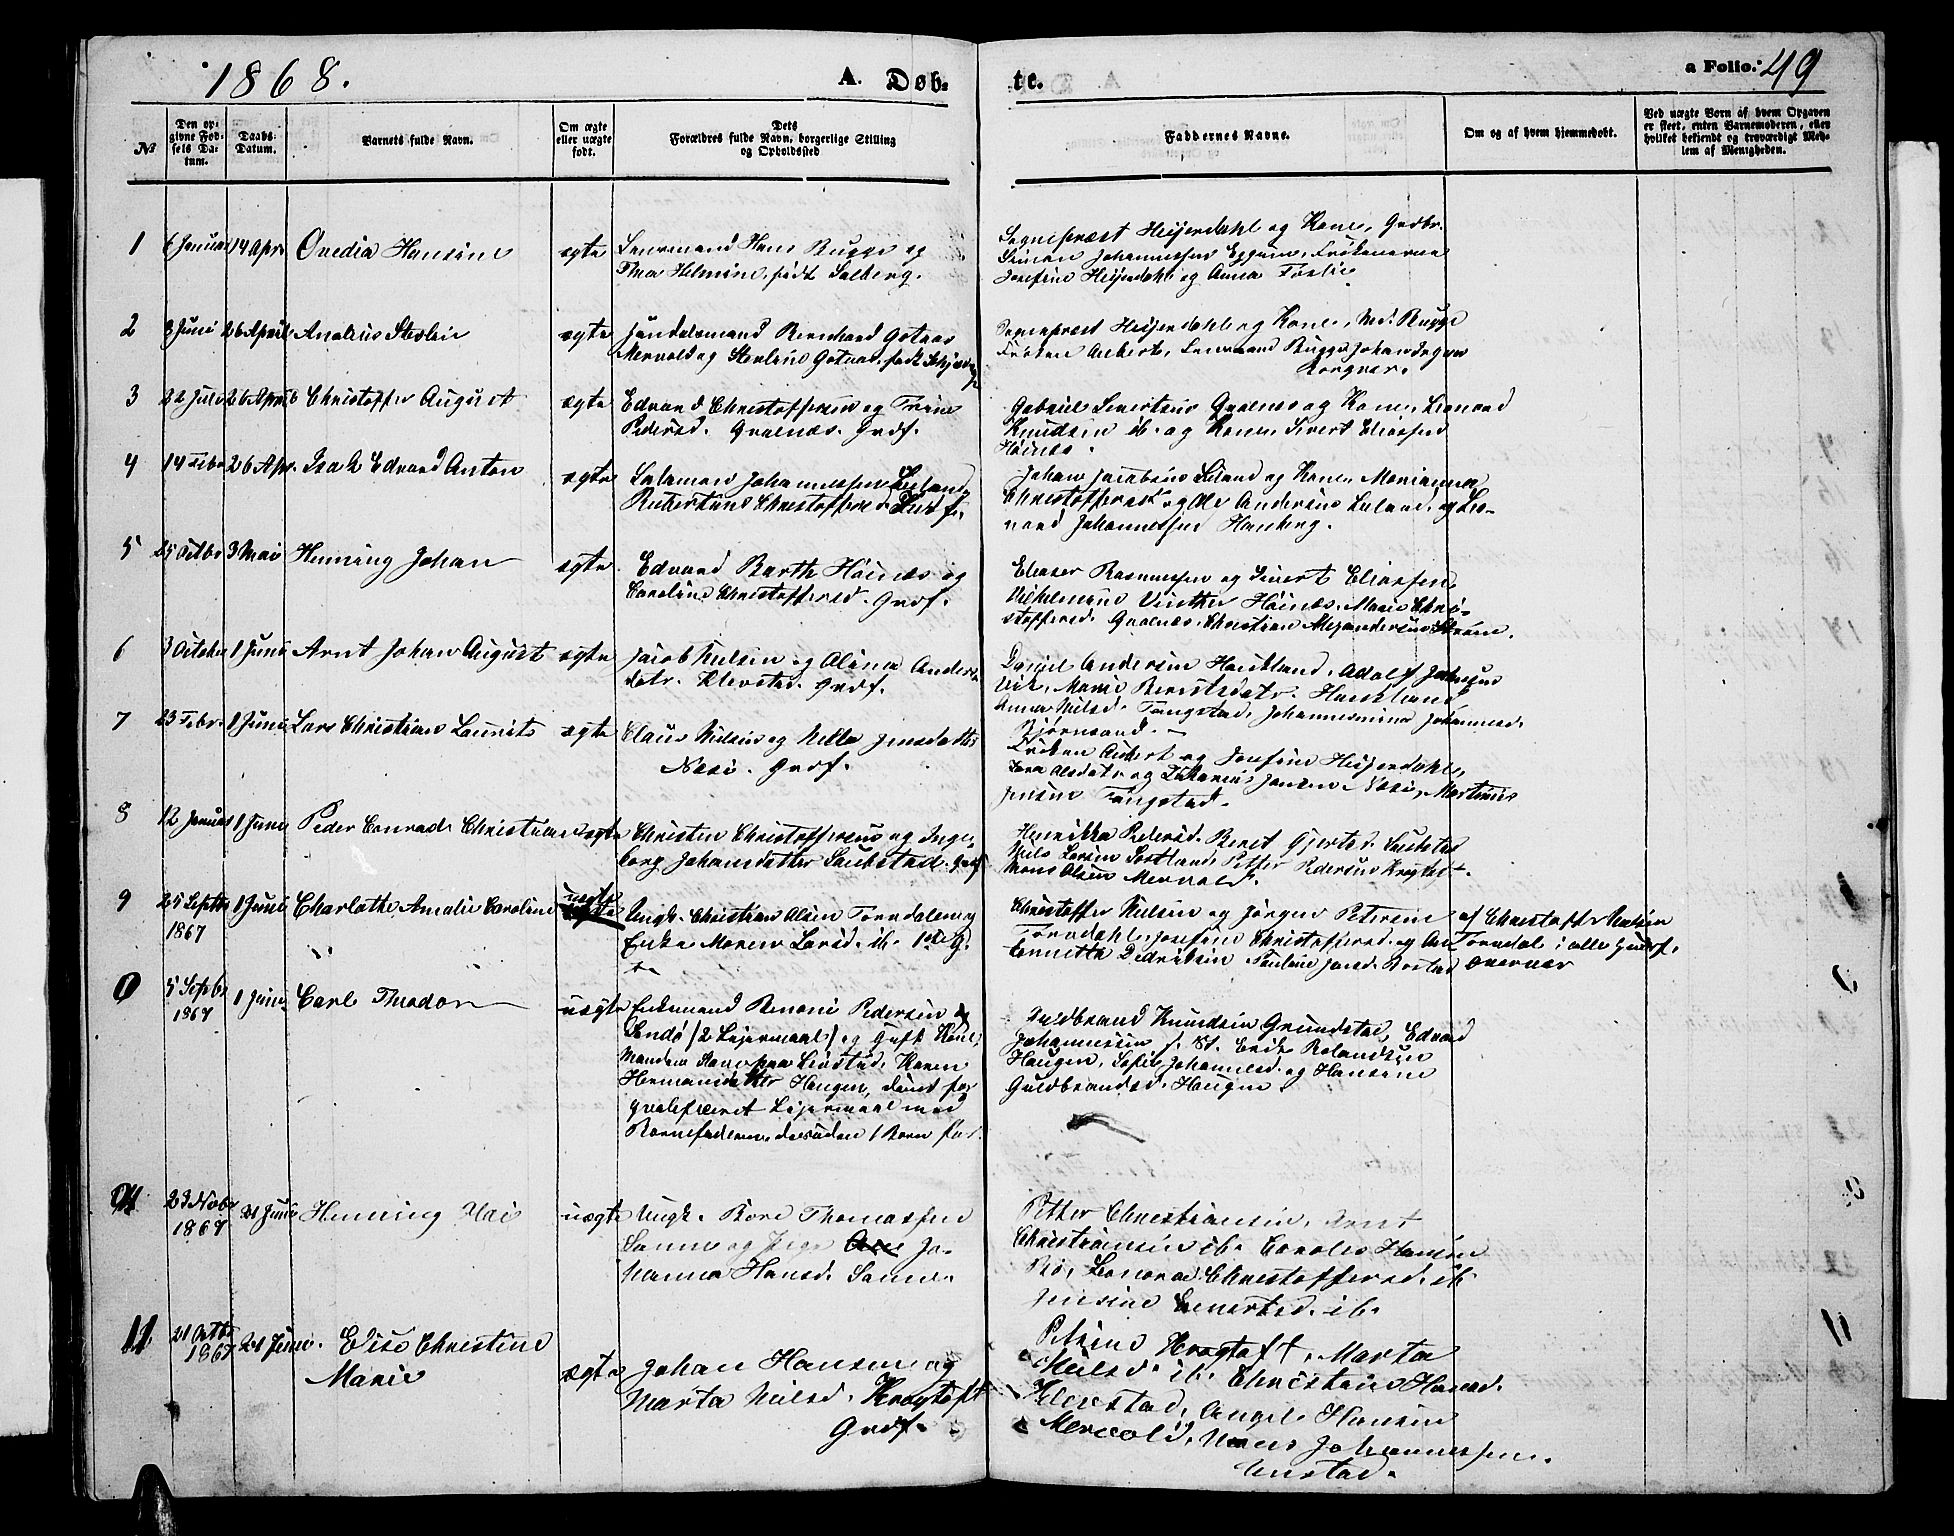 1868.
A. Døb-
te.
a Folio. 49
№
Den op-
givne Fød-
sels Da-
tum.
Daabs-
Datum.
Barnets fulde Navn.
Om ægte
eller uægte
født.
Dets
Forældres fulde Navn, borgerlige Stilling
og Opholdssted
Faddernes Navne.
Om og af hvem hjemmedøbt.
Ved uægte Børn af hvem Opgaven
er skeet, enten Barnemoderen, eller
hvilket bekjendt og troværdigt Med-
lem af Menigheden.
1 6 Januar 14 Apr. Ovedia Hansine ægte
Lensmand Hans Bugge og
Thea Helmine, født Salberg.
Sognepræst Heijerdahl og Kone, Gadbr.
Simon Johannessen Eggum, Frökenerne
Josefine Heijerdahl og Anna Foslie
2 8 Juni 26 April Analius Steslin ægte
Handelsmand Bernhard Gotaas
Mervold og Gotaas, født
Sognepræst Heijerdahl og Kone, Md. Bugge
Fröken Aubert, Lensmand Bugge, Johan
Borgvær.
3 22 Juli 26 April Christoffer August ægte
Edvard Christoffersen og Trine
Pedersd. Qvalnæs. Grdf.
Gabriel Sivertsen Qvalnæs og Kone, Leonard
Knudsen ib. og Kone, Sivert Eliassen
Höinæs.
4 14 Febr 26 Apr. Isak Edvard Anton ægte
Salamon Johannessen Leland,
Christoffersd
Johan Jacobsen Leland og Kone Marianna
Christoffersd. og Ole Andersen Leland, og Leo-
nard Johannessen Hauberg.
5 25 Octbr 3 Mai Henning Johan ægte
Edvard Barth Höinæs og
Caroline Christoffersd. Grdf.
Eliaser Rasmussen og Sivert Eliassen,
Vilhelmine Vinther Höinæs. Marie Chri-
stoffersd. Qvalnæs. Christian Alexandersen Ström.
6 3 October 1 Juni Arnt Johan August ægte
Jacob Nilsen og Alina Anders-
datr. Klevstad. Grdf.
Daniel Andersen Haukland, Adolf Johnsen
Vik, Marie Berntsdatr. Haukland
Anna Nilsd. Tangstad, Johannesmina Johannesd.
Björnsand.
7 23 Febr. 1 Juni Lars Christian Laurits ægte
Claus Nilsen og Nella Jensdatter
Næsi. Grdf.
Fröken Aubert og Josefine Heijerdahl,
Olsdatr og Zakarias Jensen Næsi, Martinus
Jensen Tangstad.
8 12 Januar 1 Juni Peder Conrad Christian ægte
Christen Christoffersen og Inge-
borg Johansdatter Saubstad. Grdf.
Henrikka Pedersd. Beret Gjertsd. Saubstad
Nils Larsen Sortland, Petter Pedersen Kragtoft.
Mons Olsen Mervold.
9 25 Septbr
1867
1 Juni Charlotte Amalie Caroline uægte
Ungk. Christian Olsen Torvdalen og
Enke Maren Larsd. ib. 1ste G.
Christoffer Nielsen og Jörgen Petersen
Torvdahl, Josefine Christoffersd. og
Annetta Didriksen Pauline Jensd. Bostad
af Christoffer Nielsen
Torvdal i alle
Overvær
0 5 Septbr
1867
1 Juni Carl Theodor uægte
Enkemand Benoni Pedersen
Sandö /2 Leiermaal/ og Gift Kone,
Manden Karen
Hermansdatter Haugen, dömt for
qvalificeret Leiermaal med
Barnefaderen desuden 1 Barn før.
Guldbrand Knudsen Grundstad, Edvard
Johannessen f. St. Erik Rolandsen
Haugen, Sofie Johannesd. og Hansine
Guldbrandsd. Haugen
23 Novbr
1867
21 Juni Henning Kai uægte
Ungk. Bore Thomassen
Sanne og Pige Jo-
hanna Hansd. Sanne.
Petter Christiansen, Arnt
Christiansen ib. Caroles Hansen
Bö, Leonora Christoffersd. ib
Jensine Lenertsd. ib.
11 21 Octbr
1867
21 Juni. Elise Christine
Marie
ægte
Johan Hansen og
Marta Nilsd. Kragtoft
Grdf.
Petrine Kragtoft, Marta
Nilsd. ib. Christine Hansd.
Klevstad, Angel Hansen
Mervold, Hans Johannessen
Unstad.